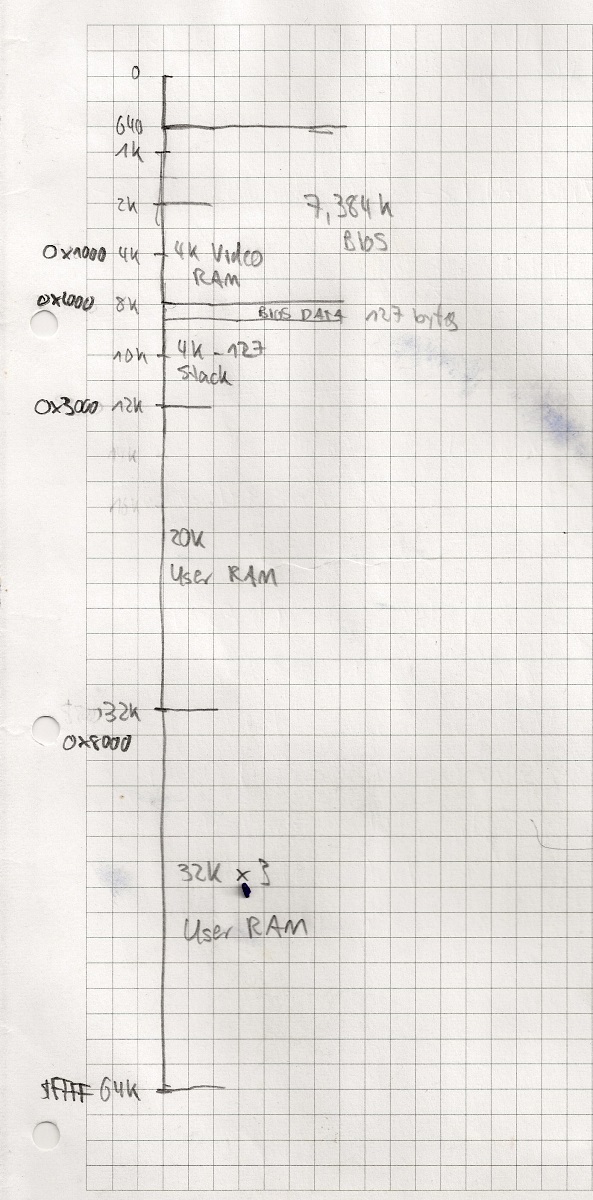 0
640
1K
2K
7,384K
BIOS
0x1000 4K
4K Video
RAM
8K
BIOS DATA 127 bytes
10K
4K - 127
Stack
0x3000 12K
16K
20K
User RAM
32K
0x8000
32K x 3
User RAM
$FFFF 64K